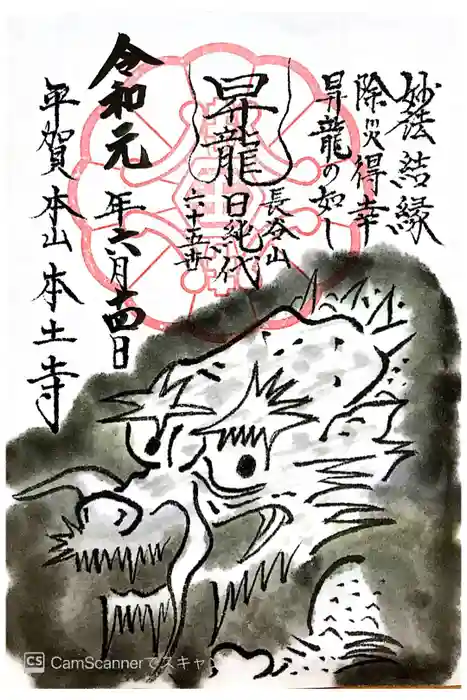 妙法結縁
除災得幸
昇龍の如し
昇龍
長谷山
日純代
六十五世
令和元年六月十四日
平賀本山本土寺
CS CamScannerでスキャン